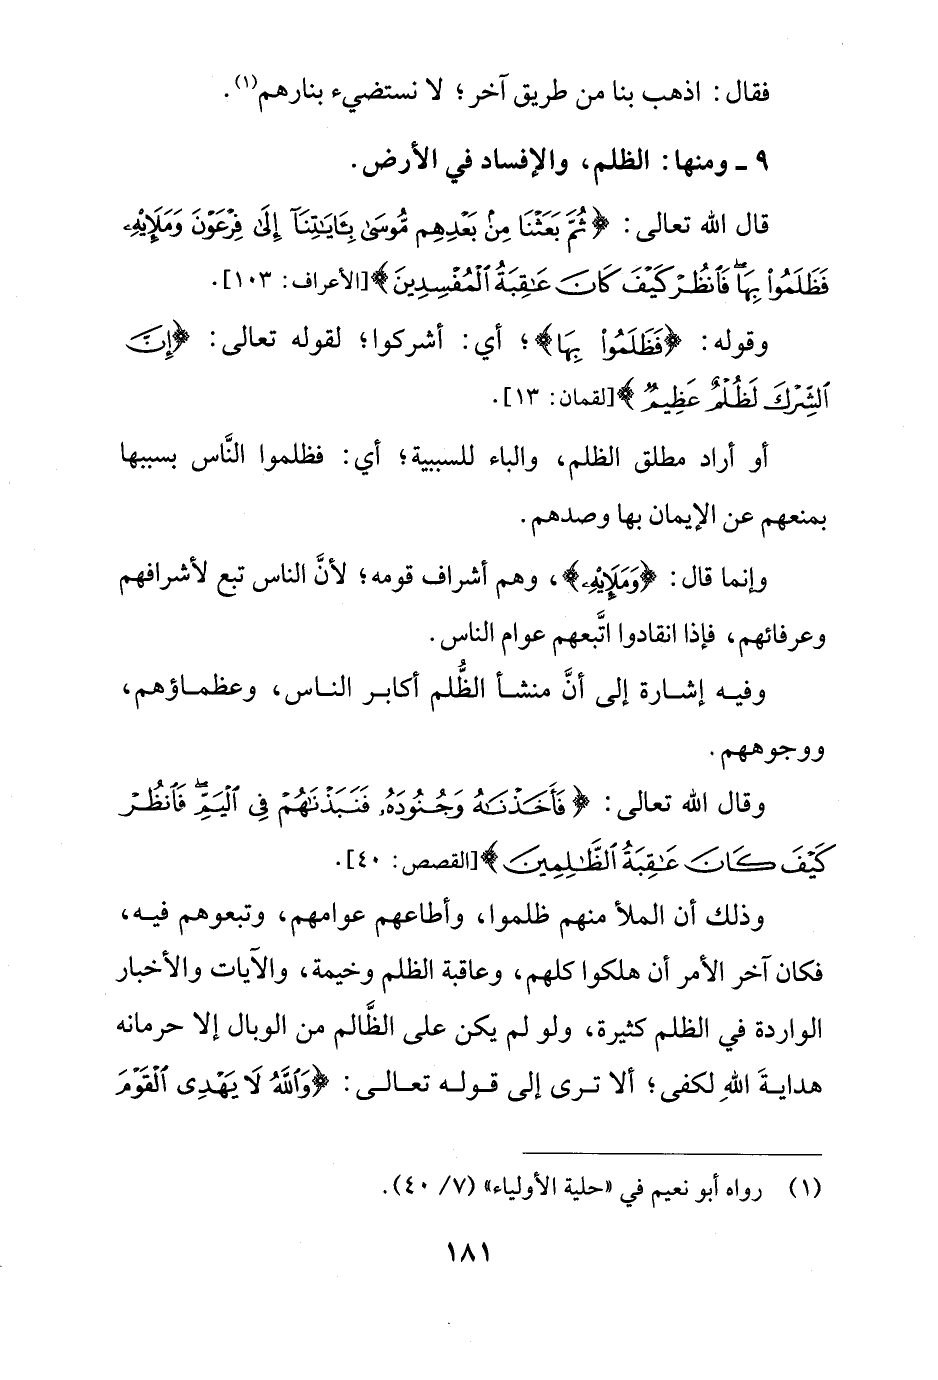 فقال: اذهب بنا من طريق آخر؛ لا نستضيء بنارهم(١).
٩ ـ ومنها: الظلم، والإفساد في الأرض.
قال الله تعالى: ﴿ثُمَّ بَعَثْنَا مِنۢ بَعْدِهِم مُّوسَىٰ بِـَٔايَـٰتِنَآ إِلَىٰ فِرْعَوْنَ وَمَلَإِي۟هِۦ
فَظَلَمُوا۟ بِهَا ۖ فَٱنظُرْ كَيْفَ كَانَ عَـٰقِبَةُ ٱلْمُفْسِدِينَ﴾[الأعراف: ١٠٣].
وقوله: ﴿فَظَلَمُوا۟ بِهَا﴾؛ أي: أشركوا؛ لقوله تعالى: ﴿إِنَّ
ٱلشِّرْكَ لَظُلْمٌ عَظِيمٌ﴾[لقمان: ١٣].
أو أراد مطلق الظلم، والباء للسببية؛ أي: فظلموا النَّاس بسببها
بمنعهم عن الإيمان بها وصدهم.
وإنما قال: ﴿وَمَلَإِي۟هِۦ﴾، وهم أشراف قومه؛ لأنَّ الناس تبع لأشرافهم
وعرفائهم، فإذا انقادوا اتَّبعهم عوام الناس.
وفيه إشارة إلى أنَّ منشأ الظُّلم أكابر الناس، وعظماؤهم،
ووجوههم.
وقال الله تعالى: ﴿فَأَخَذْنَـٰهُ وَجُنُودَهُۥ فَنَبَذْنَـٰهُمْ فِى ٱلْيَمِّ ۖ فَٱنظُرْ
كَيْفَ كَانَ عَـٰقِبَةُ ٱلظَّـٰلِمِينَ﴾[القصص: ٤٠].
وذلك أن الملأ منهم ظلموا، وأطاعهم عوامهم، وتبعوهم فيه،
فكان آخر الأمر أن هلكوا كلهم، وعاقبة الظلم وخيمة، والآيات والأخبار
الواردة في الظلم كثيرة، ولو لم يكن على الظَّالم من الوبال إلا حرمانه
هدايةَ اللهِ لكفى؛ ألا ترى إلى قوله تعالى: ﴿وَٱللَّهُ لَا يَهْدِى ٱلْقَوْمَ
(١) رواه أبو نعيم في «حلية الأولياء» (٧/ ٤٠).
١٨١